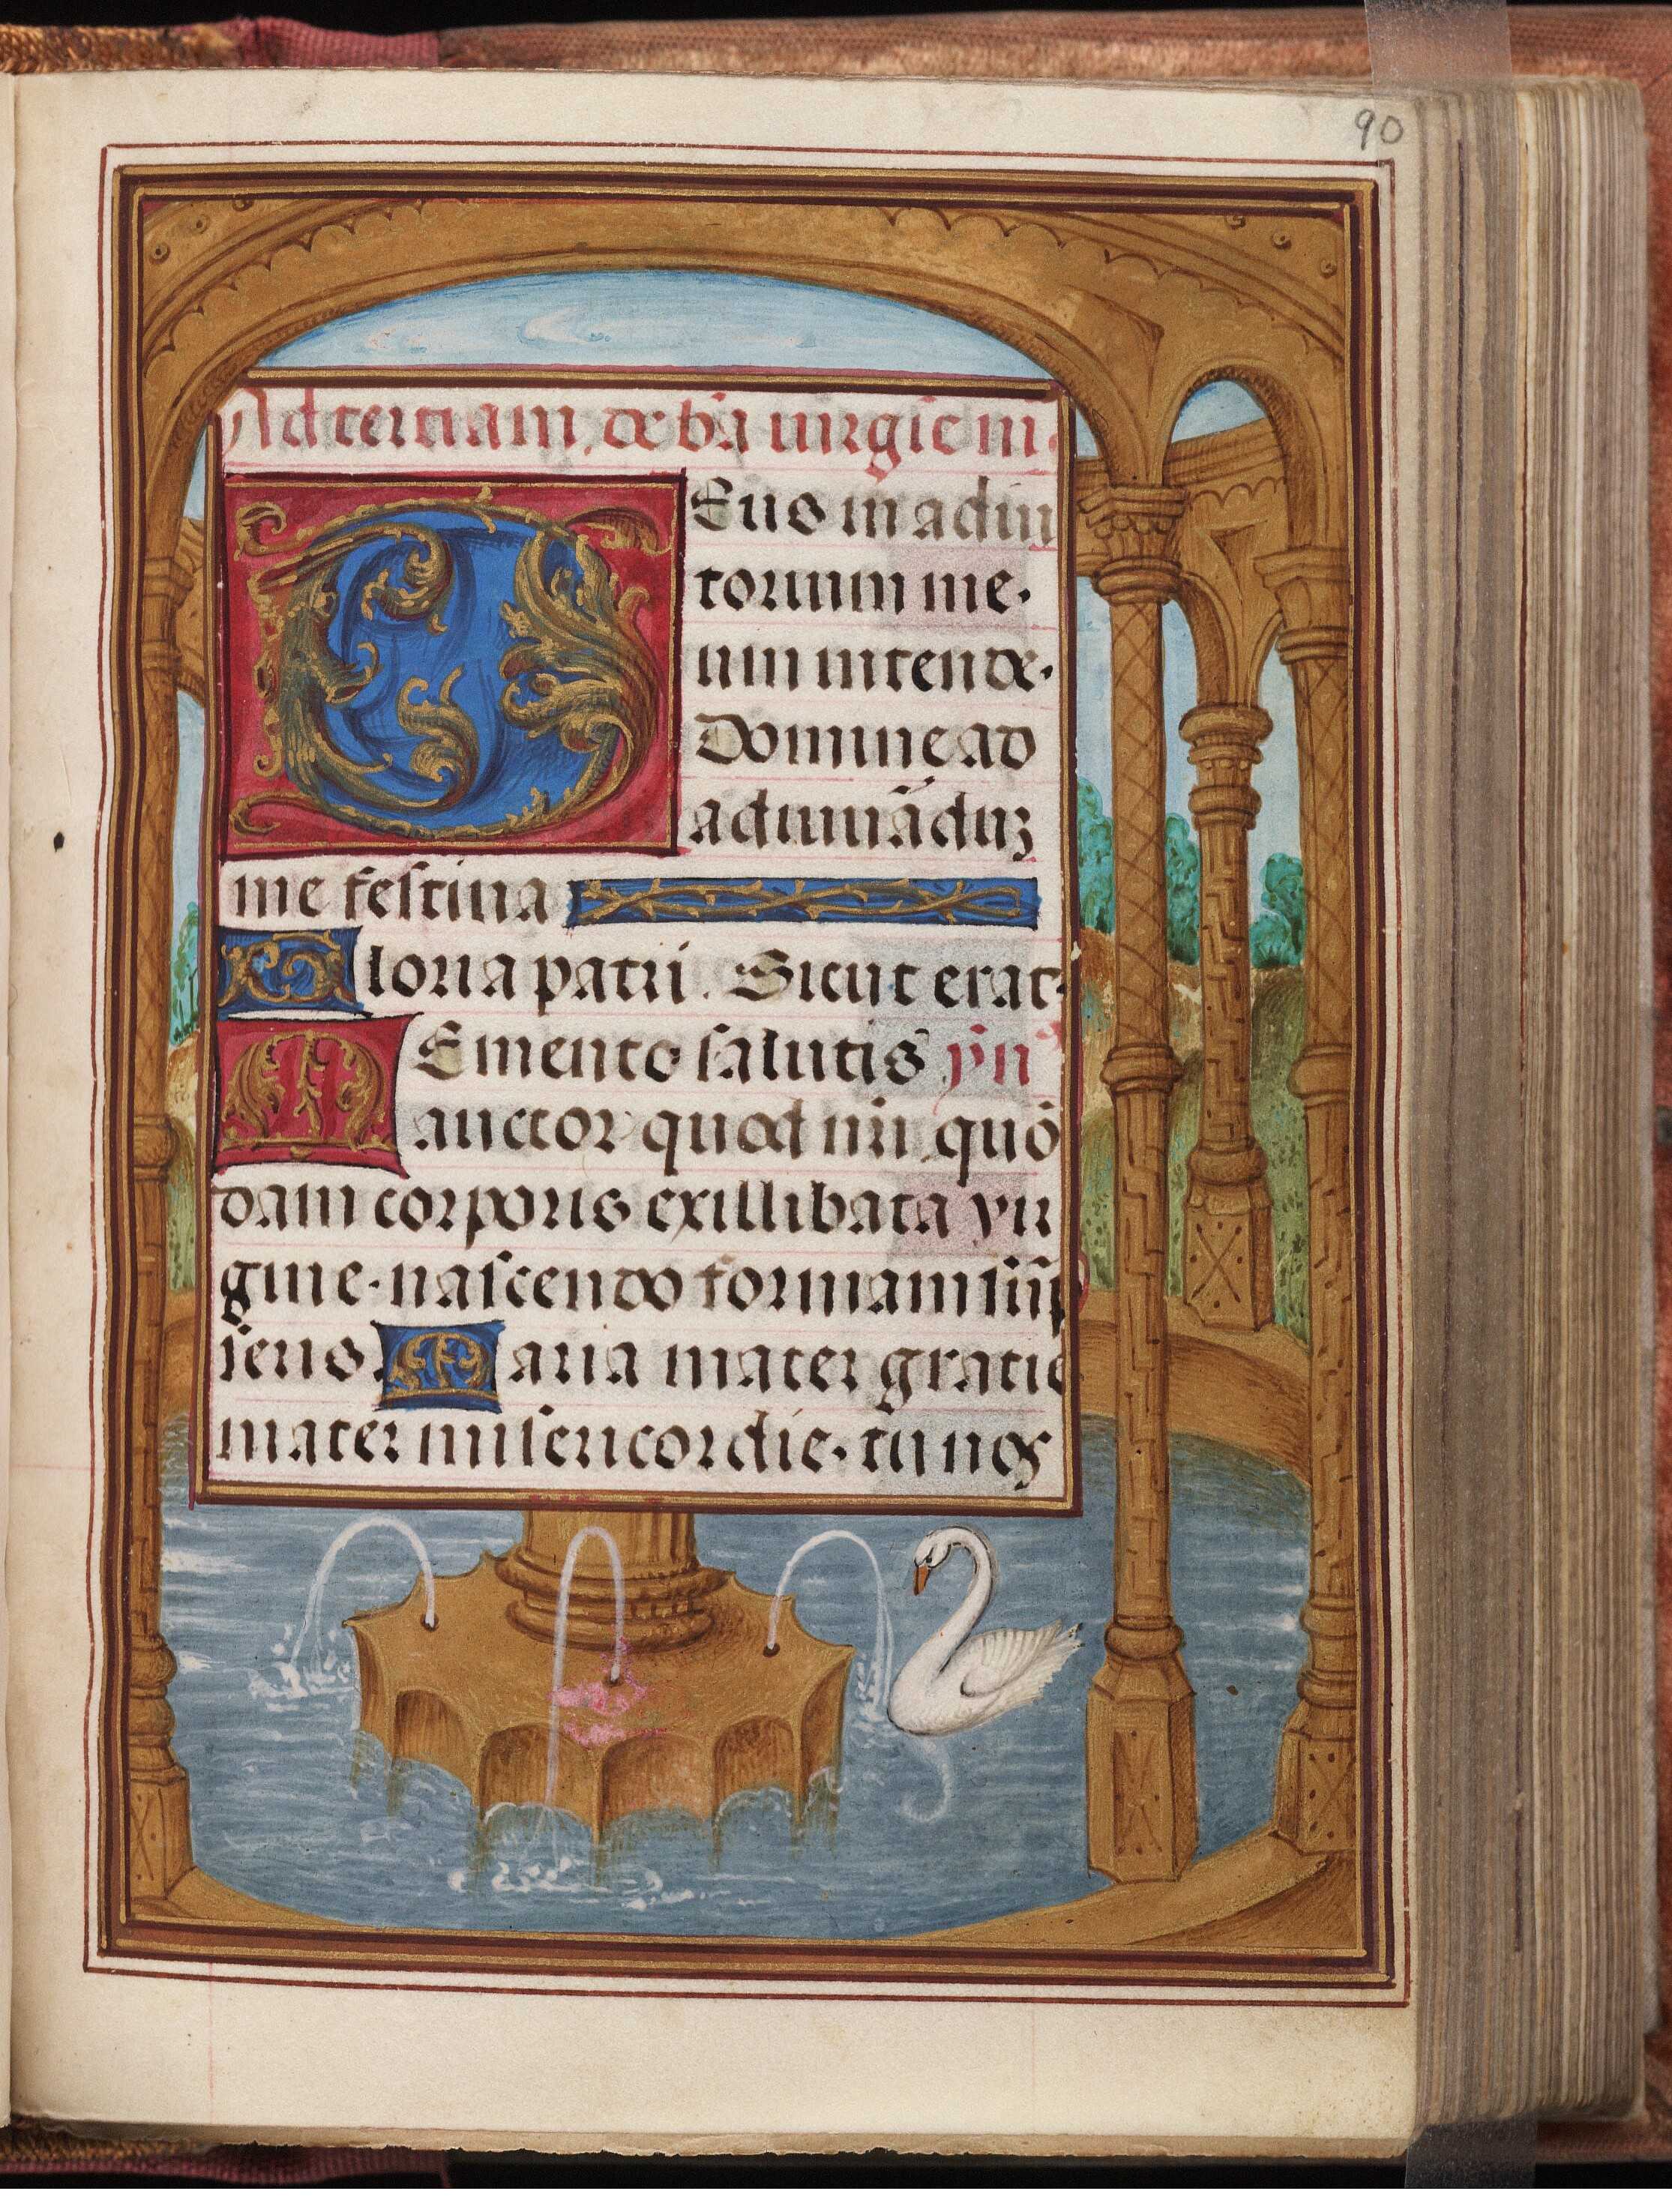 90
Ad tertiam. de bã uirgiẽ m.
DEus in adiu
torium me·
um intende·
Domine ad
adiuuãduȝ
me festina
Gloria patri. Sicut erat·
MEmento salutis yn̾
auctor quod nr̃i quõ
dam corporis ex illibata vir
gine·nascendo formam sũp
seris. Maria mater gratie
mater misericordie·tu nos